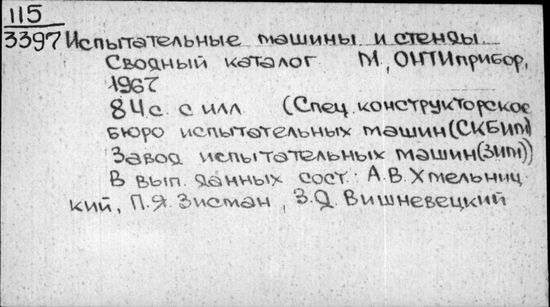 115
3397 Испытательные машины и стенды
Сводный каталог М., ОНТИприбор,
1967
84с. с илл (Спец. конструкторское
бюро испытательных машин (СКБИМ)
Завод испытательных машин (ЗИМ))
В вып. данных сост.: А.В.Хмельниц
кий, П.Я. Зисман, З.Д. Вишневецкий